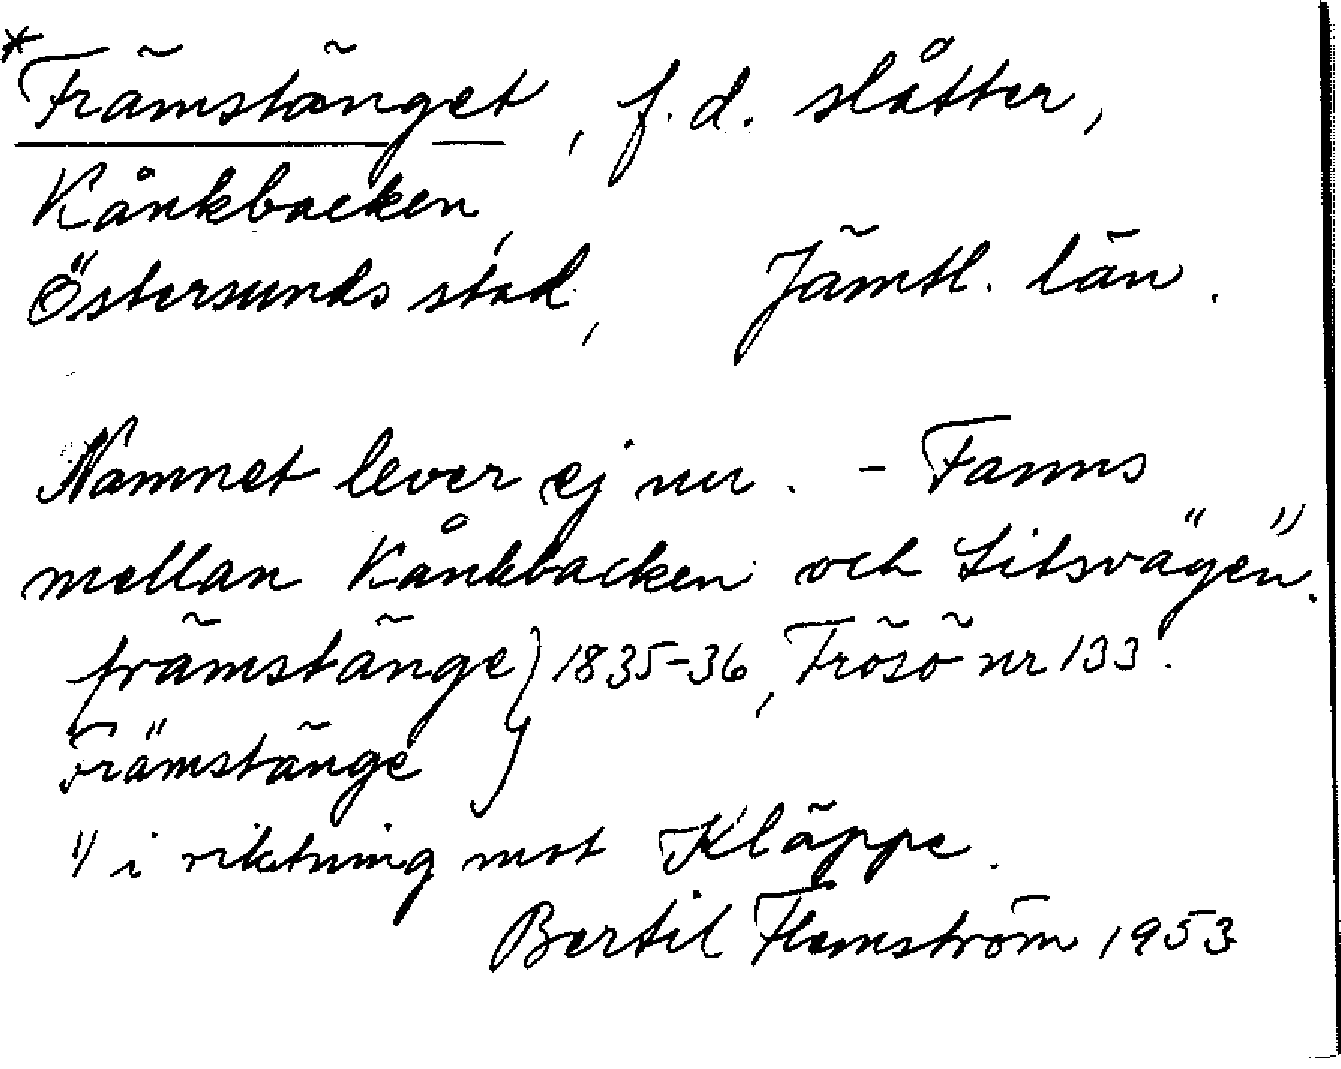 *Främstänget, f.d. slåtter,
Kånkbacken,
Östersunds stad, Jämtl. län.
Namnet lever ej nu. - Fanns
mellan Kånkbacken och Litsvägen 1).
främstänge } 1835-36, Frösö nr 133.
Främstänge
1) i riktning mot Kläppe.
Bertil Flemström 1953